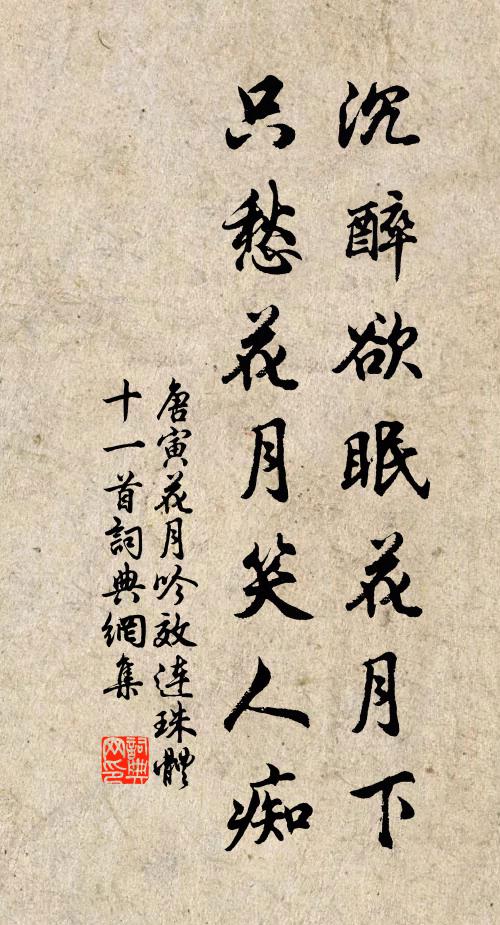 沉醉欲眠花月下
只愁花月笑人痴
唐寅花月吟效连珠體
十一首詞典網集
詞典网印